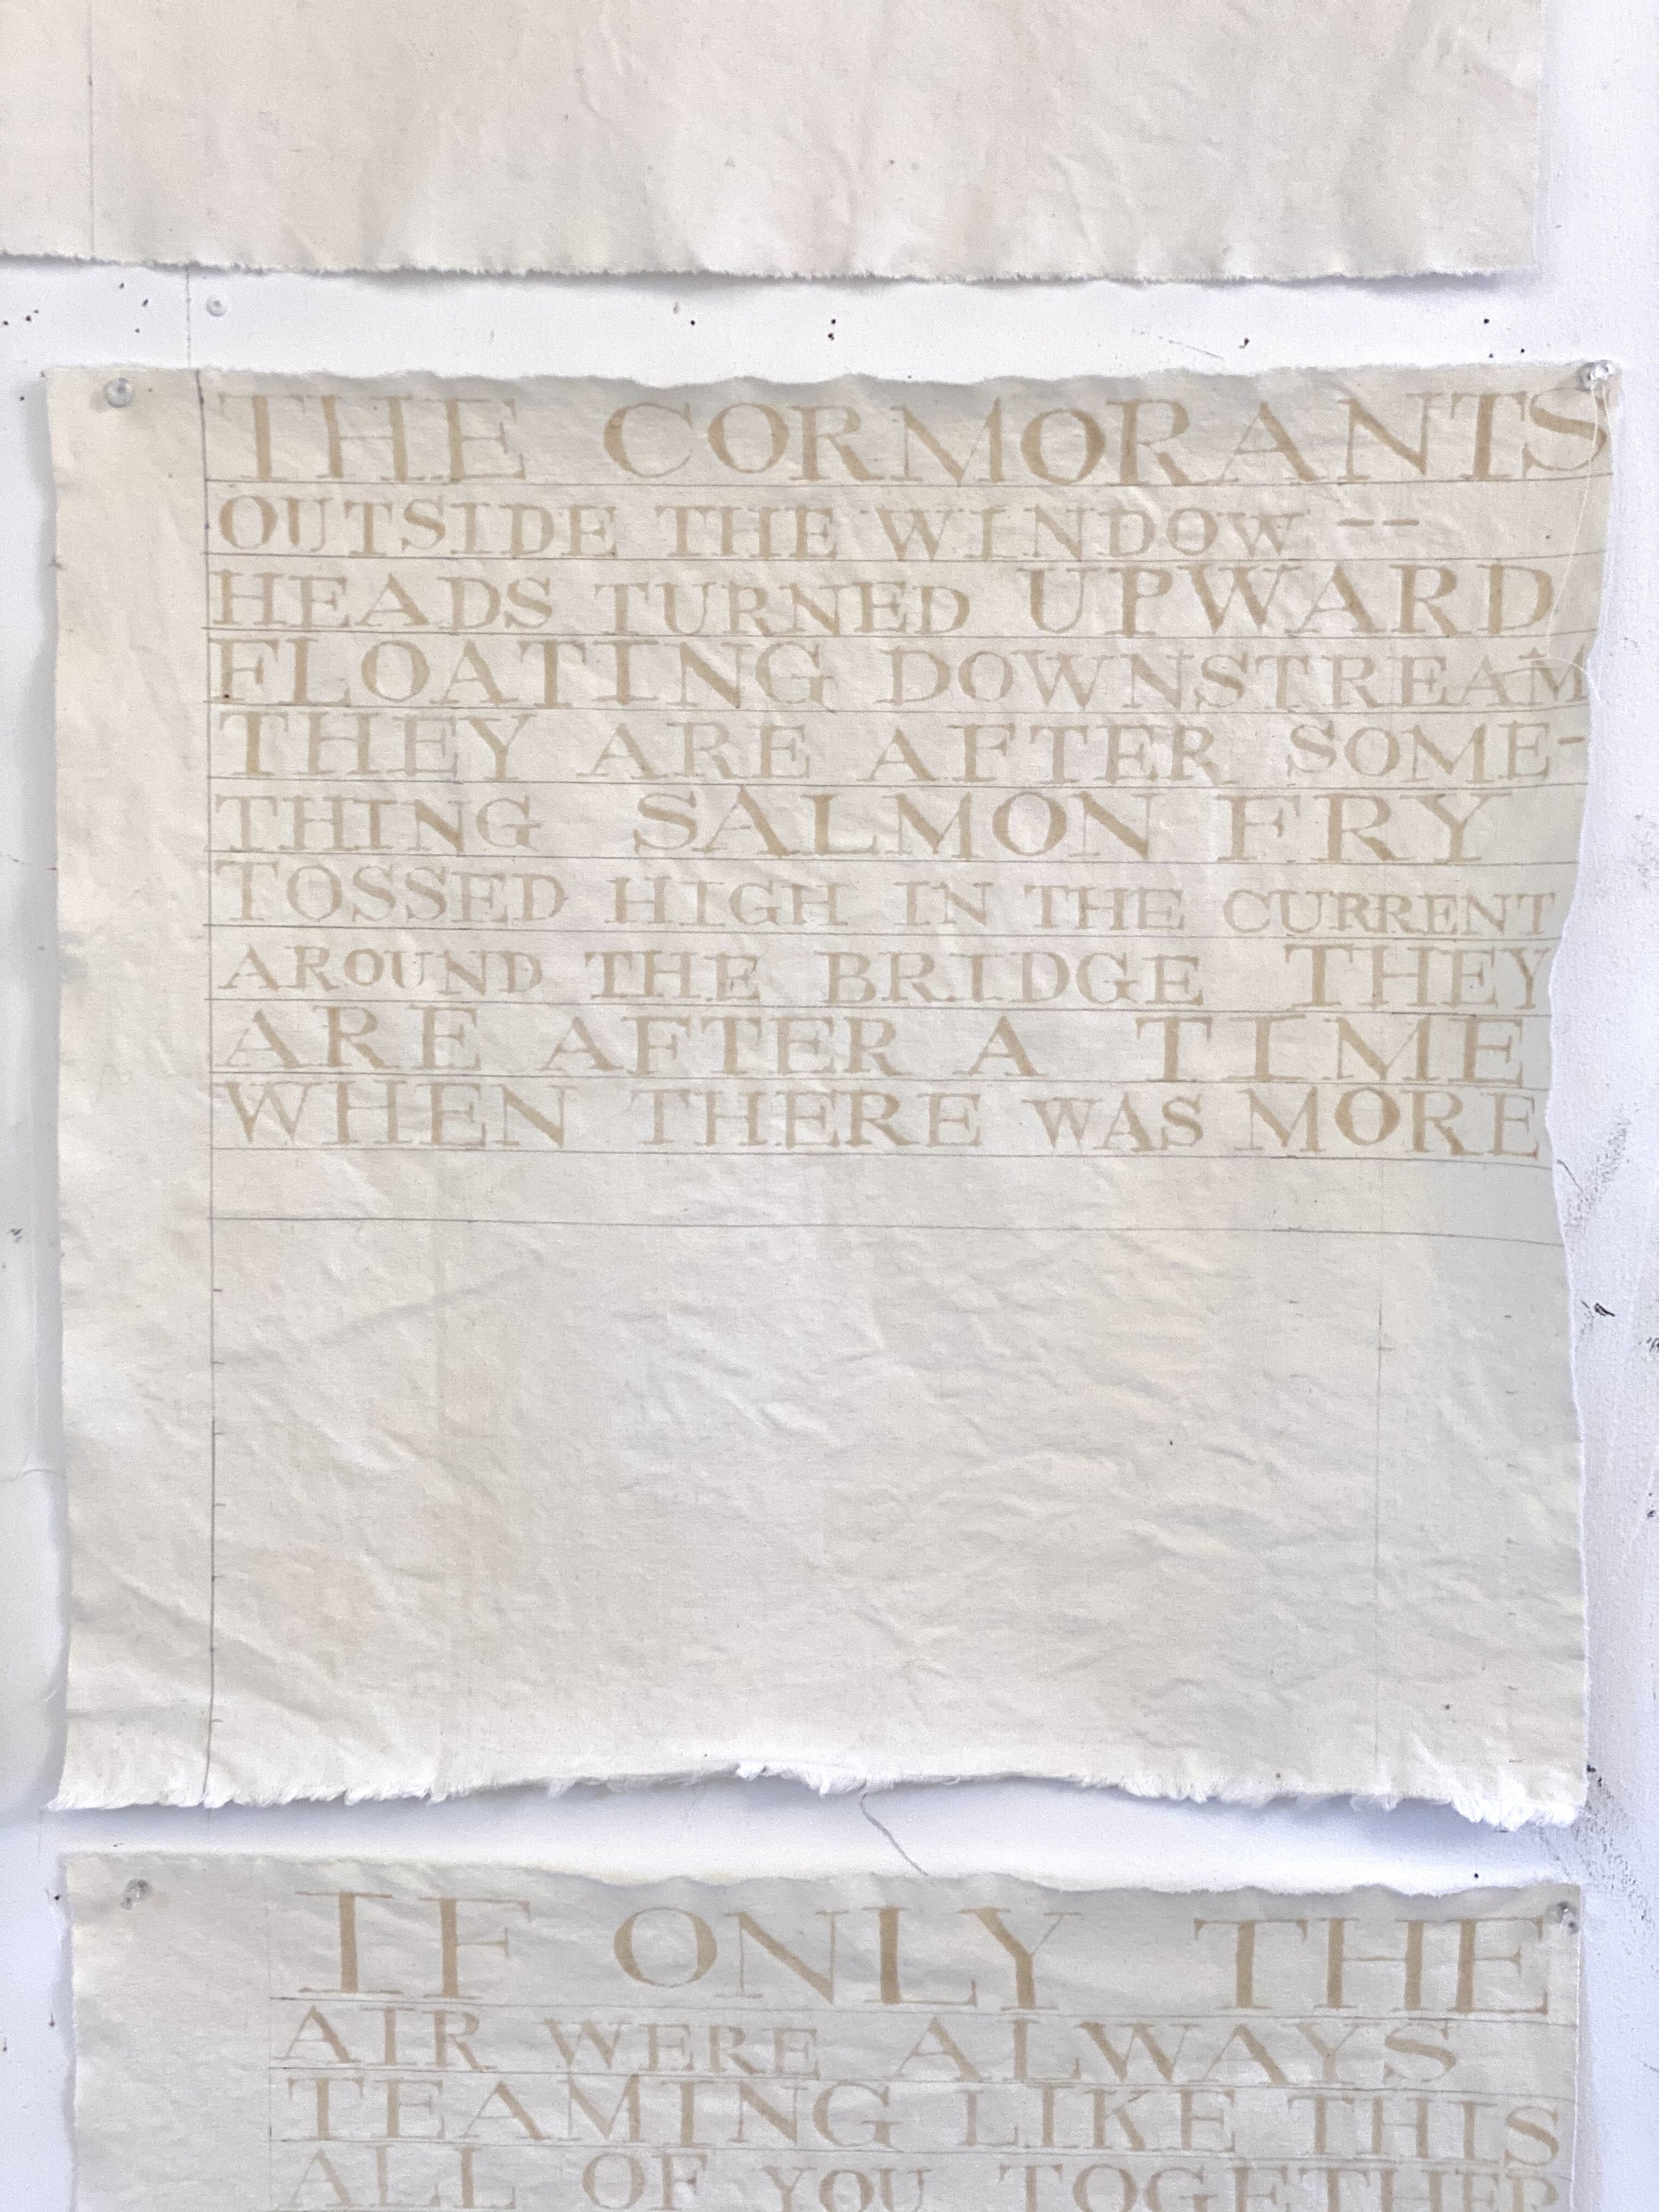 THE CORMORANTS
OUTSIDE THE WINDOW --
HEADS TURNED UPWARD
FLOATING DOWNSTREAM
THEY ARE AFTER SOME-
THING SALMON FRY
TOSSED HIGH IN THE CURRENT
AROUND THE BRIDGE THEY
ARE AFTER A TIME
WHEN THERE WAS MORE
IF ONLY THE
AIR WERE ALWAYS
TEAMING LIKE THIS
ALL OF YOU TOGETHER